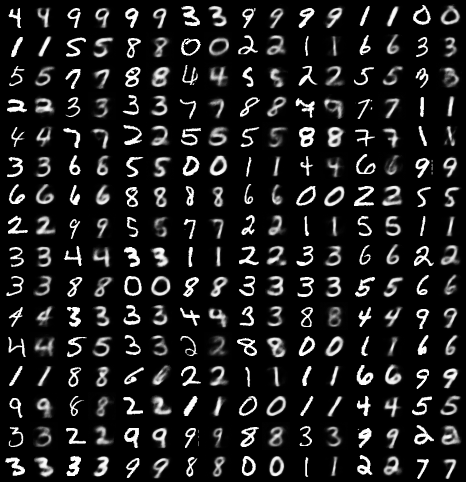 4 4 9 9 9 9 3 3 9 9 9 9 1 1 0 0
1 1 5 5 8 8 0 0 2 2 1 1 6 6 3 3
5 5 7 7 8 8 4 4 5 5 2 2 5 5 3 3
2 2 3 3 3 3 7 7 8 8 7 9 7 7 1 1
4 4 7 7 2 2 5 5 5 5 8 8 7 7 1 1
3 3 6 6 5 5 0 0 1 1 4 4 6 6 9 9
6 6 6 6 8 8 8 8 6 6 0 0 2 2 5 5
2 2 9 9 5 5 7 7 2 2 1 1 5 5 1 1
3 3 4 4 3 3 1 1 2 2 3 3 6 6 2 2
3 3 8 8 0 0 8 8 3 3 3 3 5 5 6 6
4 4 3 3 3 3 4 4 3 3 8 8 4 4 9 9
4 4 5 5 3 3 2 2 8 8 0 0 1 1 6 6
1 1 8 8 6 6 2 2 1 1 1 1 6 6 9 9
9 9 6 8 2 2 1 1 0 0 1 1 4 4 5 5
3 3 2 2 9 9 9 9 8 8 3 3 9 9 2 2
3 3 3 3 9 9 8 8 0 0 1 1 2 2 7 7